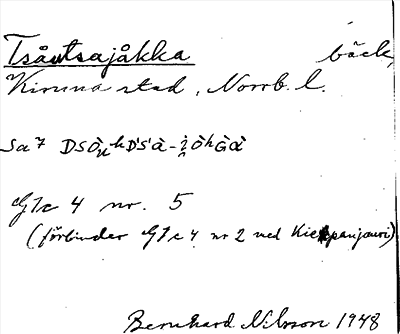 Tsåutsajåkka bäck,
Kiruna stad, Norrb. l.
Sa 7
GIc 4 nr. 5
(förbinder GIc 4 nr 2 med Kieppanjauri)
Bernhard Nilsson 1948